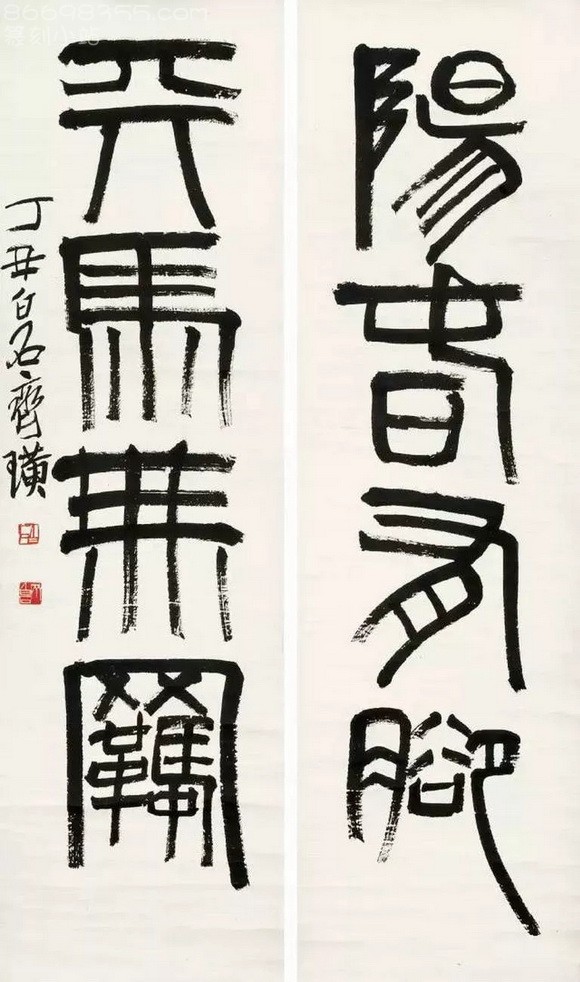 陽春有腳
天馬無羈
丁丑白石齊璜
86698355.com
篆刻小站